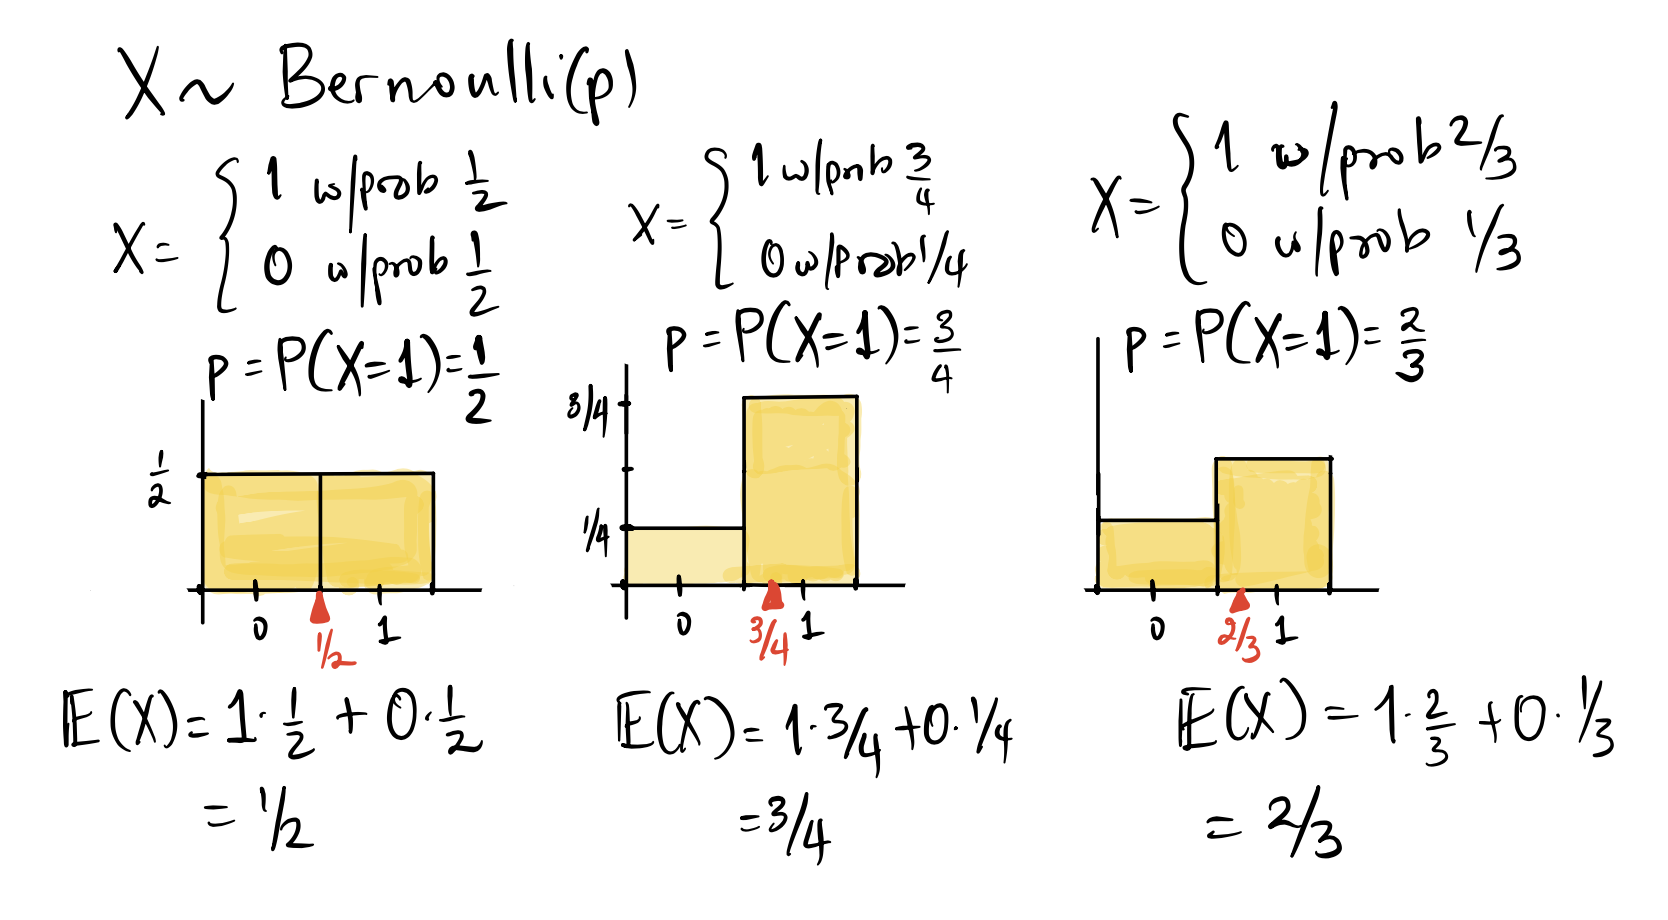 X ~ Bernoulli(p)
X = { 1 w/prob 1/2
0 w/prob 1/2
p = P(X=1) = 1/2
1/2
0 1
1/2
E(X) = 1·1/2 + 0·1/2
= 1/2
X = { 1 w/prob 3/4
0 w/prob 1/4
p = P(X=1) = 3/4
3/4
1/4
0 1
3/4
E(X) = 1·3/4 + 0·1/4
= 3/4
X = { 1 w/prob 2/3
0 w/prob 1/3
p = P(X=1) = 2/3
0 1
2/3
E(X) = 1·2/3 + 0·1/3
= 2/3